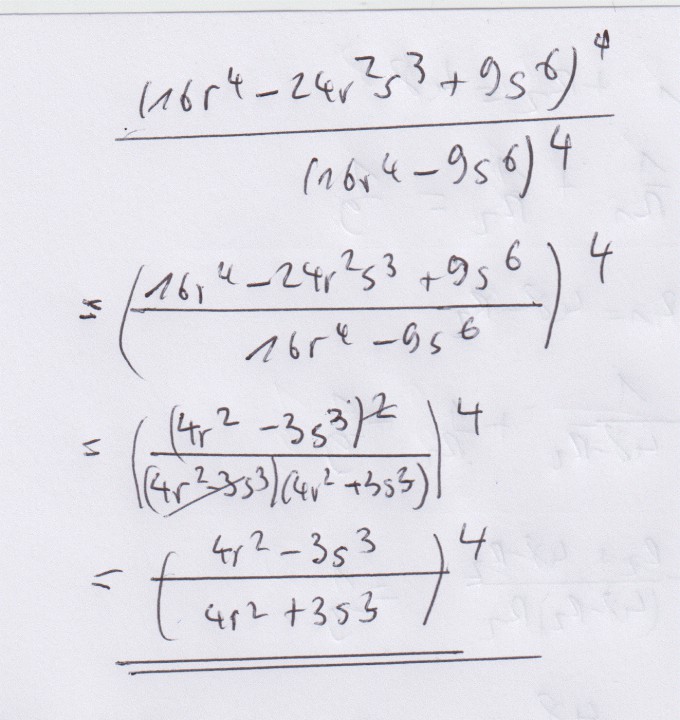 (16r⁴ − 24r²s³ + 9s⁶)⁴
(16r⁴ − 9s⁶)⁴
= (16r⁴ − 24r²s³ + 9s⁶
16r⁴ − 9s⁶)⁴
= ((4r² − 3s³)²
(4r² − 3s³)(4r² + 3s³))⁴
= (4r² − 3s³
4r² + 3s3)⁴